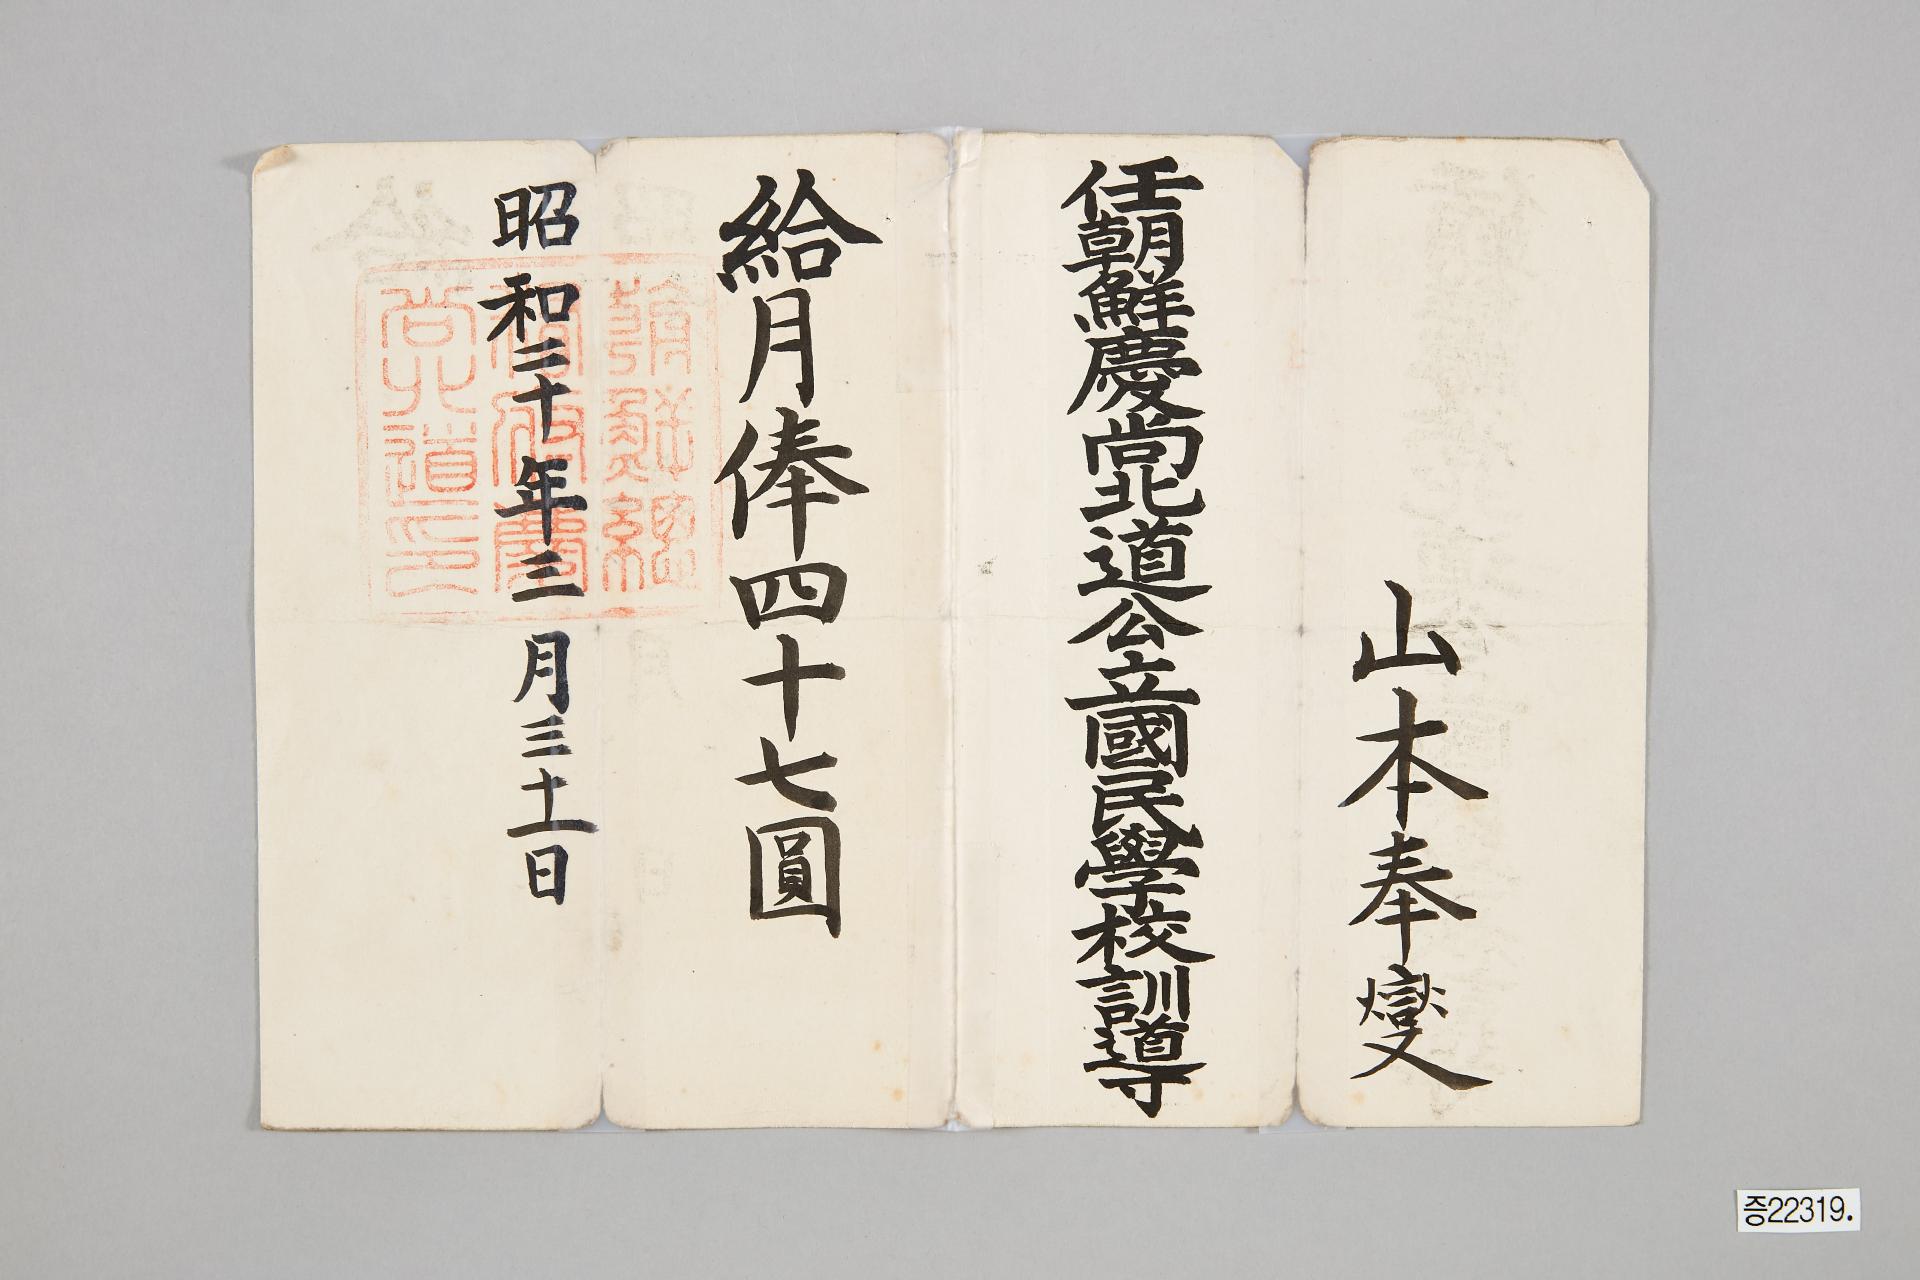 山本奉燮
任朝鮮慶尚北道公立國民學校訓導
給月俸四十七圓
昭和二十年三月三十一日
朝鮮總
督府慶
尚北道印
증22319.